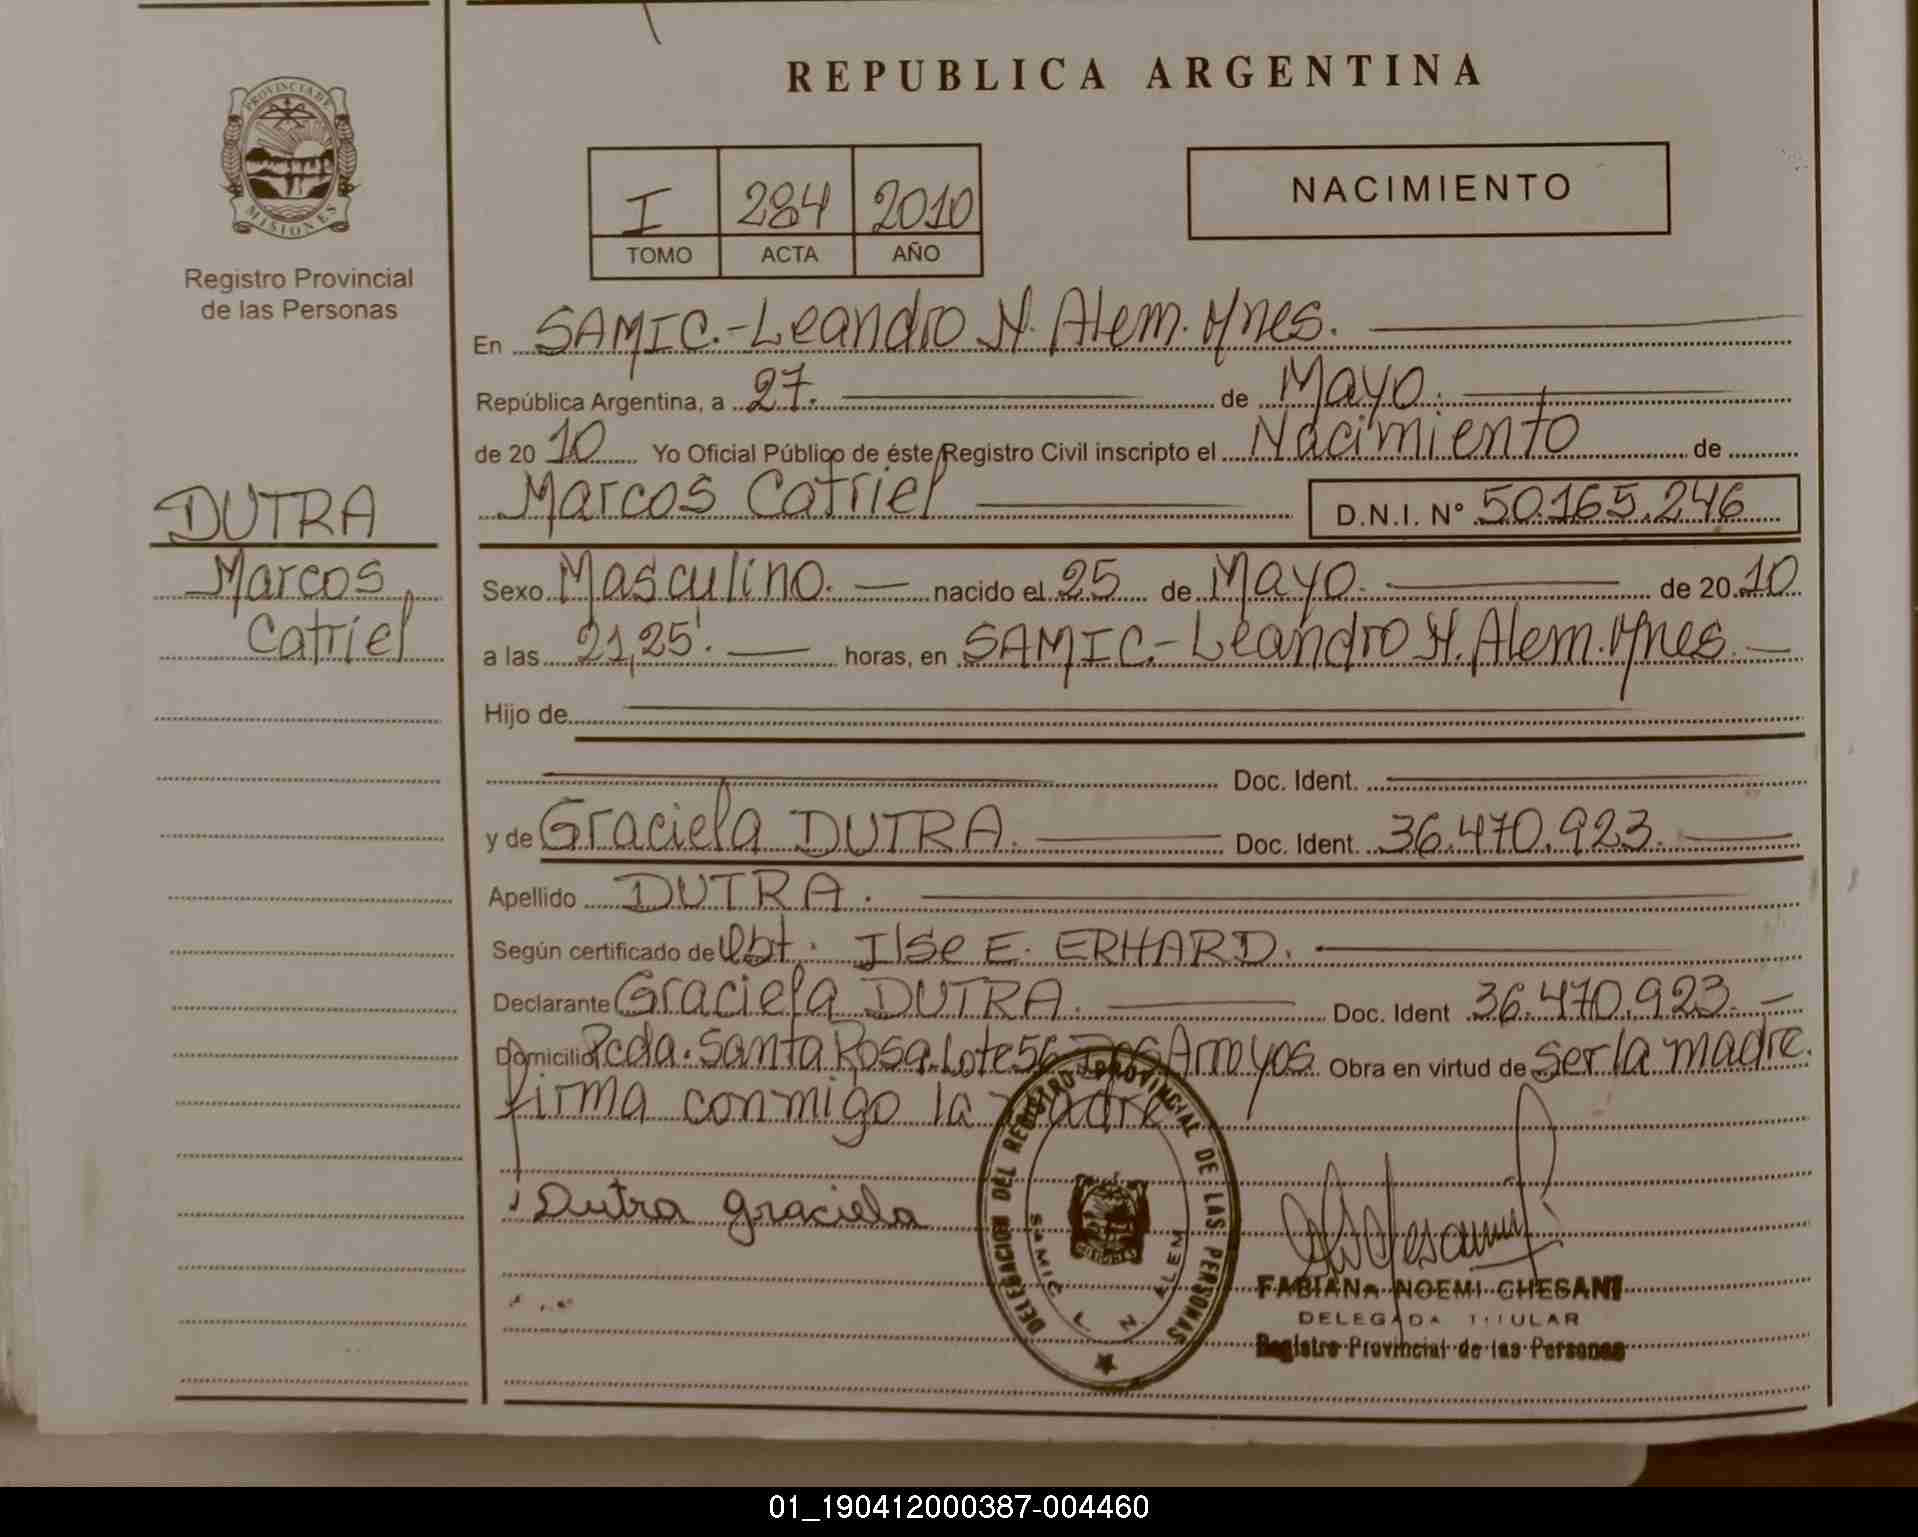 REPUBLICA ARGENTINA
PROVINCIA DE
MISIONES
Registro Provincial
de las Personas
I 284 2010
TOMO ACTA AÑO
NACIMIENTO
En SAMIC.-Leandro N. Alem. Mnes.
República Argentina, a 27. de Mayo.
de 2010 Yo Oficial Público de éste Registro Civil inscripto el Nacimiento de
Marcos Catriel D.N.I. N° 50.165.246
DUTRA
Marcos
Catriel
Sexo Masculino. nacido el 25 de Mayo. de 2010
a las 21,25'. horas, en SAMIC.-Leandro N. Alem. Mnes.
Hijo de
Doc. Ident.
y de Graciela DUTRA. Doc. Ident. 36.470.923.
Apellido DUTRA.
Según certificado de Obt. Ilse E. ERHARD.
Declarante Graciela DUTRA. Doc. Ident 36.470.923.
Domicilio Pcda. Santa Rosa. Lote 56 Dos Arroyos. Obra en virtud de ser la madre.
firma conmigo la madre
Dutra Graciela
DELEGACION DEL REGISTRO PROVINCIAL DE LAS PERSONAS
SAMIC L. N. ALEM
FABIANA NOEMI CHESANI
DELEGADA TITULAR
Registro Provincial de las Personas
01_190412000387-004460